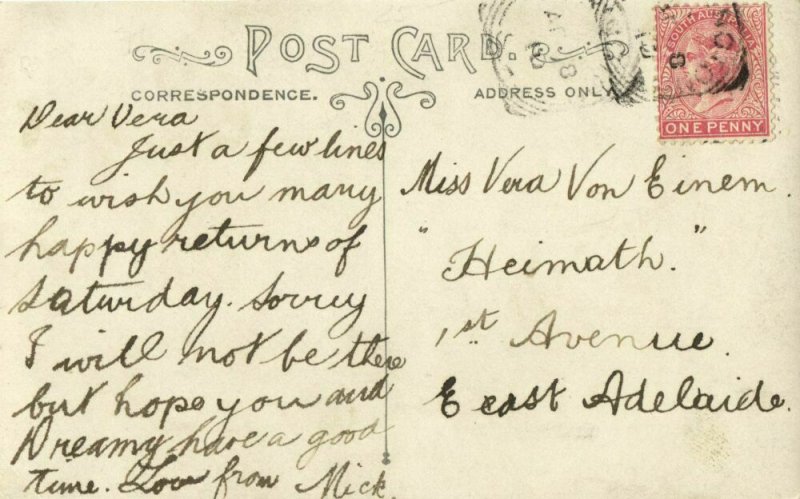 POST CARD.
CORRESPONDENCE.
ADDRESS ONLY
SOUTH AUSTRALIA
ONE PENNY
Dear Vera
Just a few lines
to wish you many
happy returns of
Saturday. Sorrey
I will not be there
but hope you and
Dreamy have a good
time. Love from Mick.
Miss Vera Von Einem.
"Heimath."
1st Avenue.
East Adelaide.